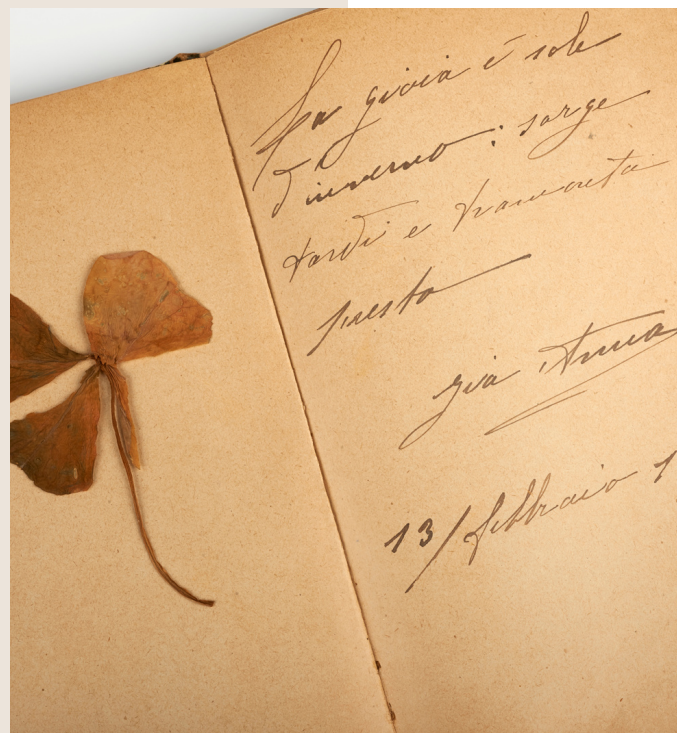 La gioia è sole
d'inverno: sorge
tardi e tramonta
presto
zia Anna
13/febbraio 1